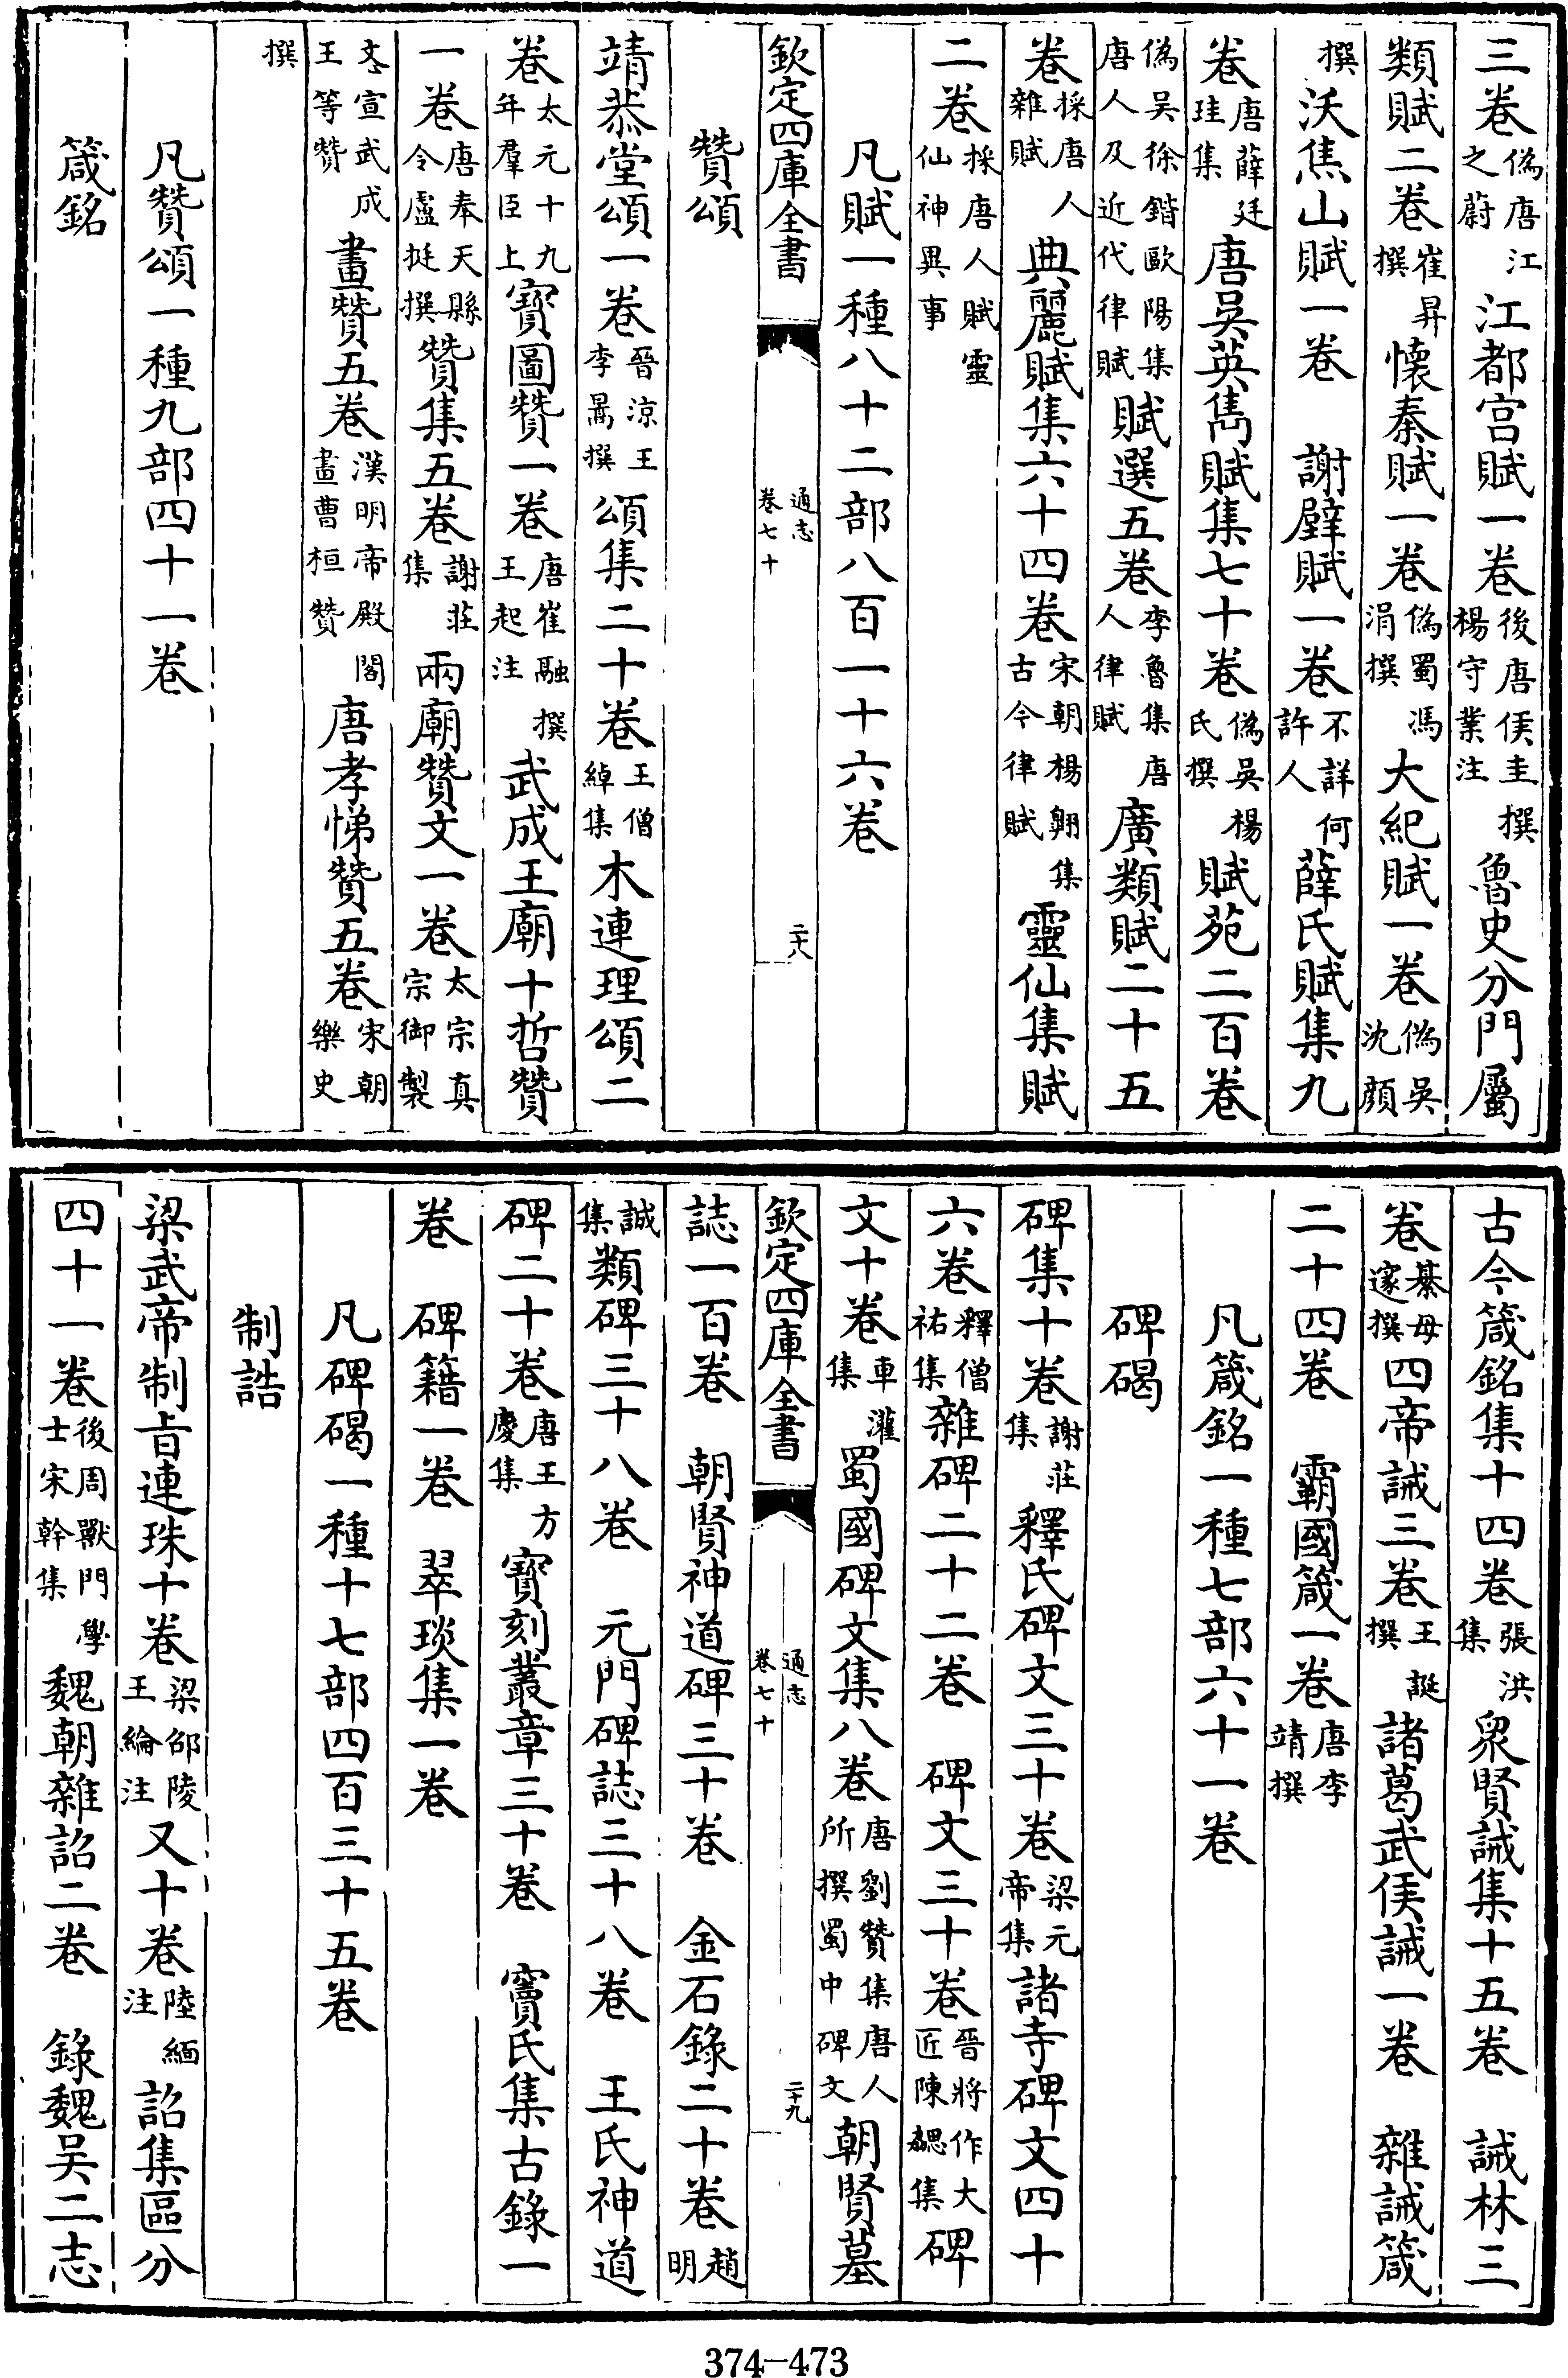 三卷偽唐江之蔚江都宮賦一卷後唐侯圭撰楊守業注魯史分門屬
類賦二卷崔昇撰懷秦賦一卷偽蜀馮涓撰大紀賦一卷偽吳沈顔
撰沃焦山賦一卷　謝璧賦一卷不詳何許人薛氏賦集九
卷唐薛廷珪集唐吳英雋賦集七十卷偽吳楊氏撰賦苑二百卷
偽吳徐鍇歐陽集唐人及近代律賦賦選五卷李魯集唐人律賦廣類賦二十五
卷採唐人雜賦典麗賦集六十四卷宋朝楊翺集古今律賦靈仙集賦
二卷採唐人賦靈仙神異事
凡賦一種八十二部八百一十六卷
欽定四庫全書
通志
卷七十
二十八
贊頌
靖恭堂頌一卷晉涼王李暠撰頌集二十卷王僧綽集木連理頌二
卷太元十九年羣臣上寶圖贊一卷唐崔融撰王起注武成王廟十哲贊
一卷唐奉天縣令盧挺撰贊集五卷謝莊集兩廟贊文一卷太宗真宗御製
文宣武成王等贊畫贊五卷漢明帝殿閣畫曹桓贊唐孝悌贊五卷宋朝樂史
撰
凡贊頌一種九部四十一卷
箴銘
古今箴銘集十四卷張洪集衆賢誡集十五卷　誡林三
卷綦毋邃撰四帝誡三卷王誕撰諸葛武侯誡一卷　雜誡箴
二十四卷　霸國箴一卷唐李靖撰
凡箴銘一種七部六十一卷
碑碣
碑集十卷謝莊集釋氏碑文三十卷梁元帝集諸寺碑文四十
六卷釋僧祐集雜碑二十二卷　碑文三十卷晉將作大匠陳勰集碑
文十卷車灌集蜀國碑文集八卷唐劉贊集唐人所撰蜀中碑文朝賢墓
欽定四庫全書
通志
卷七十
二十九
誌一百卷　朝賢神道碑三十卷　金石錄二十卷趙明
誠集類碑三十八卷　元門碑誌三十八卷　王氏神道
碑二十卷唐王方慶集寶刻叢章三十卷　竇氏集古錄一
卷　碑籍一卷　翠琰集一卷
凡碑碣一種十七部四百三十五卷
制誥
梁武帝制旨連珠十卷梁邵陵王綸注又十卷陸緬注詔集區分
四十一卷後周獸門學士宋幹集魏朝雜詔二卷　錄魏吴二志
374-473